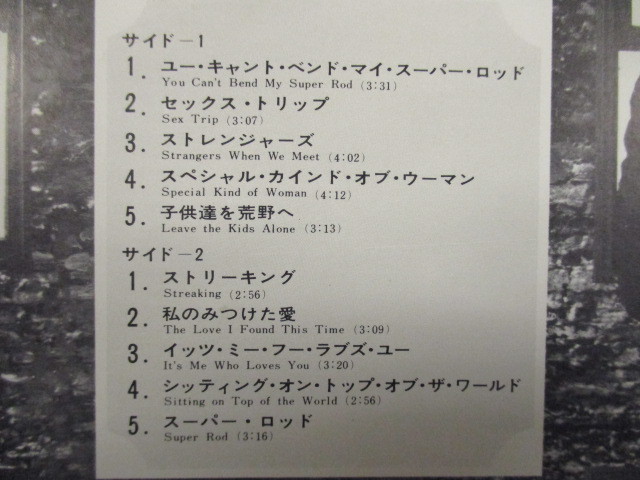 サイド－1
1. ユー・キャント・ベンド・マイ・スーパー・ロッド
You Can't Bend My Super Rod (3:31)
2. セックス・トリップ
Sex Trip (3:07)
3. ストレンジャーズ
Strangers When We Meet (4:02)
4. スペシャル・カインド・オブ・ウーマン
Special Kind of Woman (4:12)
5. 子供達を荒野へ
Leave the Kids Alone (3:13)
サイド－2
1. ストリーキング
Streaking (2:56)
2. 私のみつけた愛
The Love I Found This Time (3:09)
3. イッツ・ミー・フー・ラブズ・ユー
It's Me Who Loves You (3:20)
4. シッティング・オン・トップ・オブ・ザ・ワールド
Sitting on Top of the World (2:56)
5. スーパー・ロッド
Super Rod (3:16)